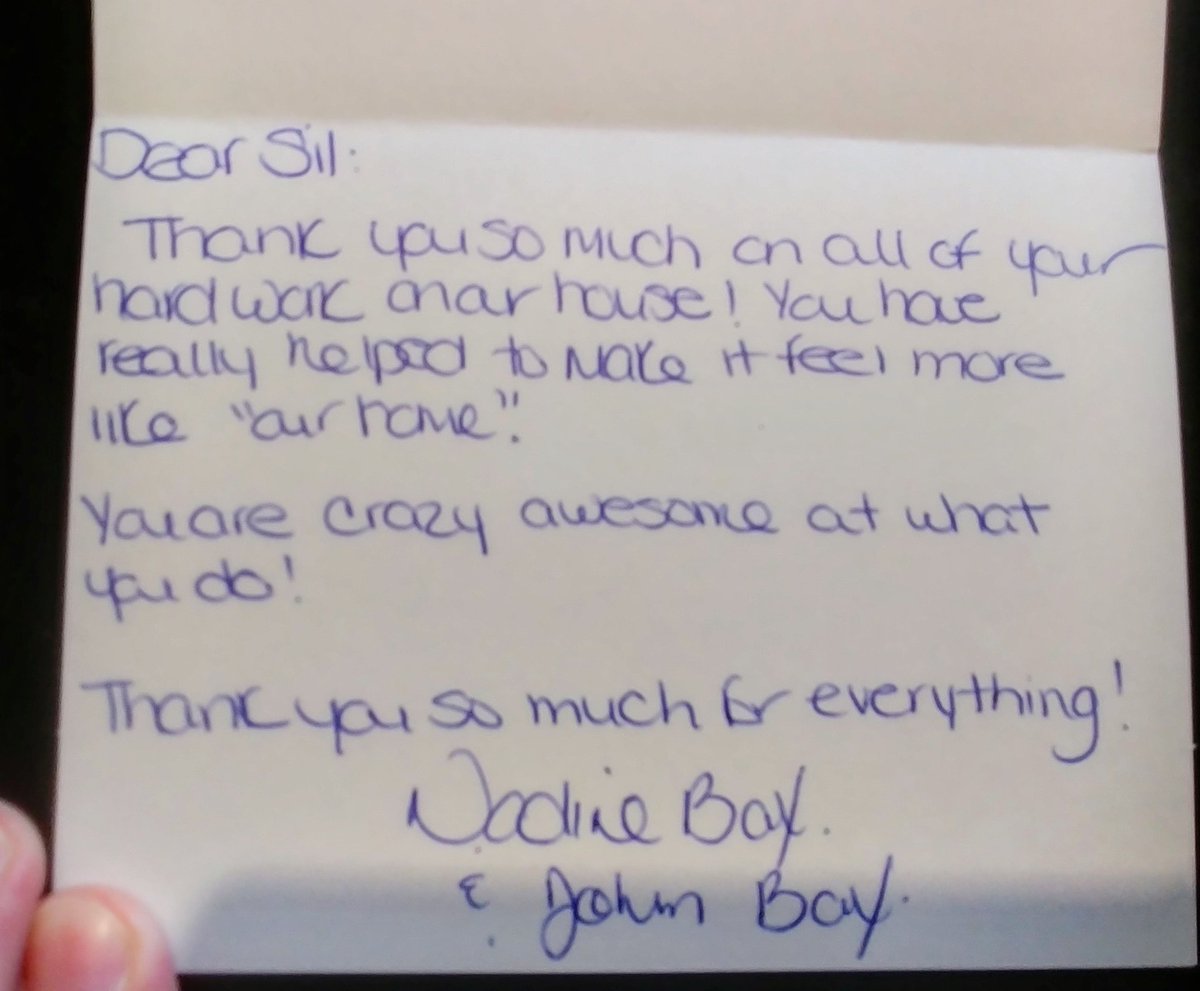 Dear Sil:
Thank you so much on all of your
hard work on our house! You have
really helped to make it feel more
like "our home".
You are crazy awesome at what
you do!
Thank you so much for everything!
Nadine Bay.
& John Bay.